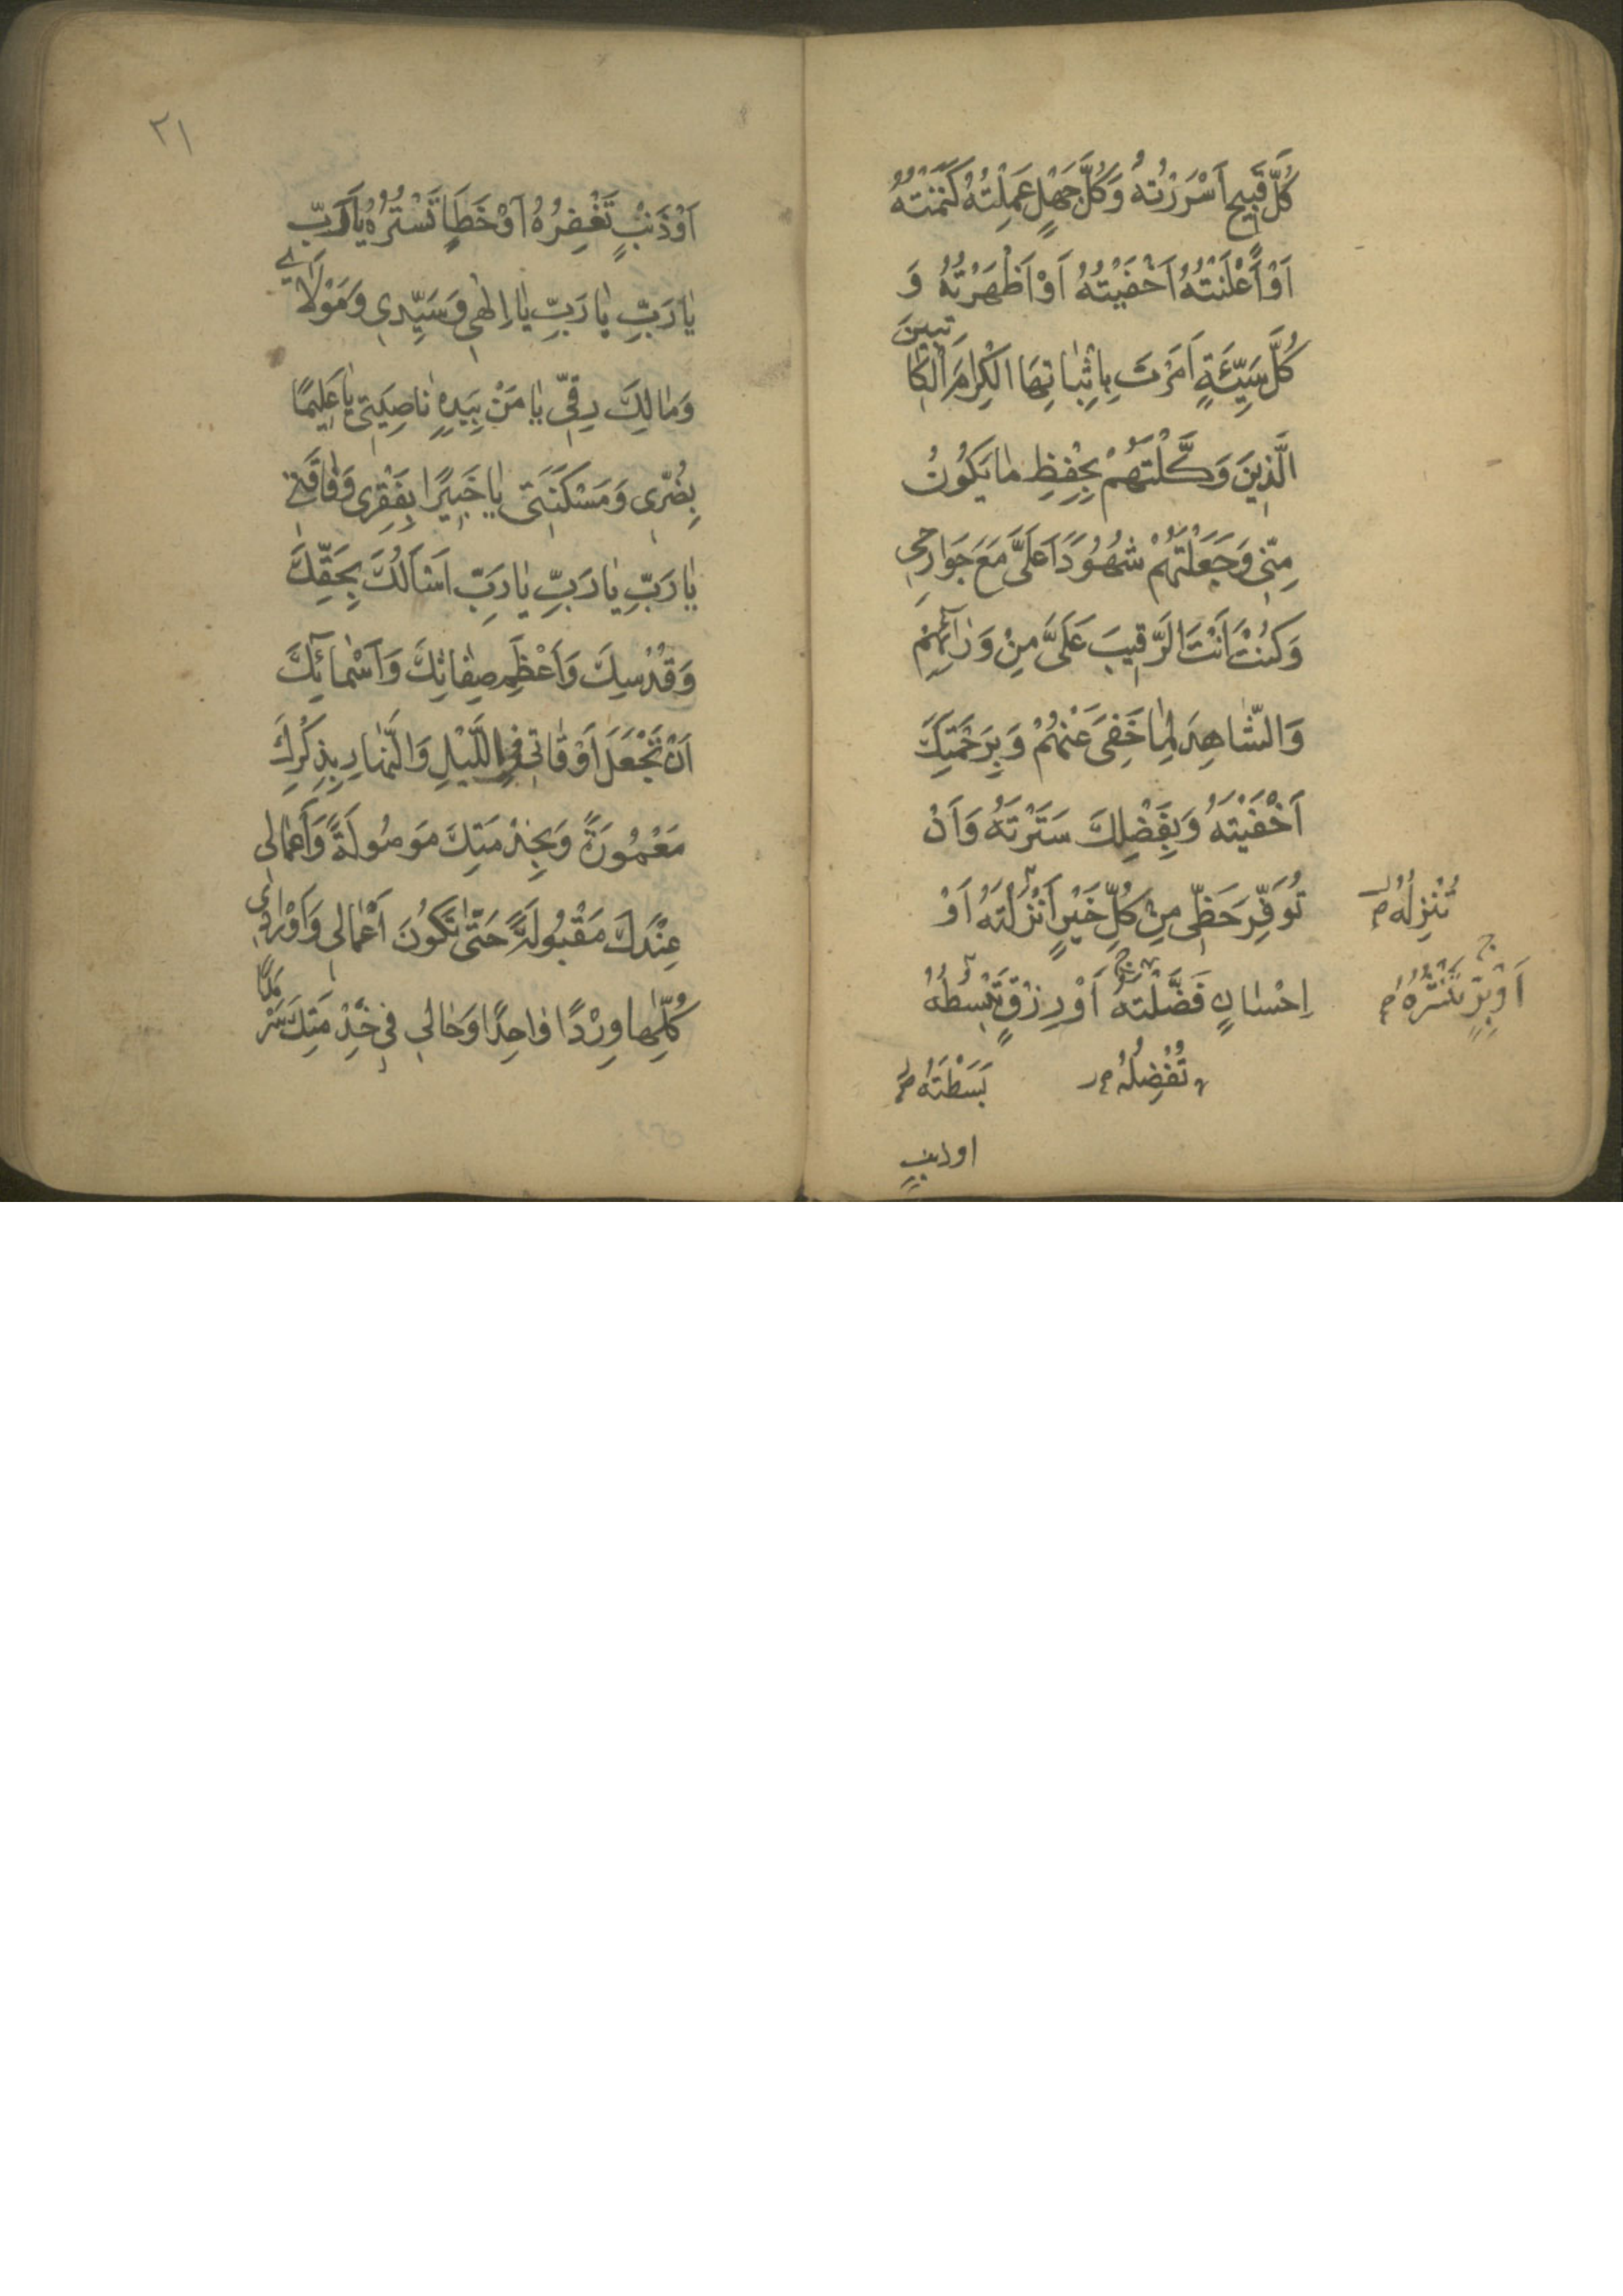 كُلَّ قَبِيحٍ اَسْرَرْتُهُ وَكُلَّ جَهْلٍ عَمِلْتُهُ كَتَمْتُهُ
اَوْ اَعْلَنْتُهُ اَخْفَيْتُهُ اَوْ اَظْهَرْتُهُ وَ
كُلَّ سَيِّئَةٍ اَمَرْتَ بِاِثْبَاتِهَا الْكِرامَ الْكاتِبينَ
الَّذِينَ وَكَّلْتَهُمْ بِحِفْظِ مٰا يَكُونُ
مِنّي وَجَعَلْتَهُمْ شُهُوُدًا عَلَىَّ مَعَ جَوَارِحي
وَكُنْتَ اَنْتَ الرَّقيبَ عَلَىَّ مِنْ وَرٰآئِهِمْ
وَالشّٰاهِدَ لِمٰا خَفِىَ عَنْهُمْ وَبِرَحْمَتِكَ
اَخْفَيْتَهُ وَبِفَضْلِكَ سَتَرْتَهُ وَاَنْ
تُوَفِّرَ حَظّي مِنْ كُلِّ خَيْرٍ اَنْزَلْتَهُ اَوْ
تُنْزِلُهُ
اِحْسٰانٍ فَضَّلْتَهُ اَوْ رِزْقٍ تَبْسُطُهُ
اَوْ بِرٍّ تَنْشُرُهُ
تُفْضِلُهُ
بَسَطْتَهُ
او ذنبٍ
٢١
اَوْ ذَنْبٍ تَغْفِرُهُ اَوْ خَطَاٍ تَسْتُرُهُ يٰا رَبِّ
يٰا رَبِّ يٰا رَبِّ يٰا اِلٰهي وَسَيِّدي وَمَوْلٰايَ
وَمٰالِكَ رِقّي يٰا مَنْ بِيَدِهِ نٰاصِيَتي يٰا عَليمًا
بِضُرّي وَمَسْكَنَتي يٰا خَبيرًا بِفَقْري وَفٰاقَتي
يٰا رَبِّ يٰا رَبِّ يٰا رَبِّ اَسْاَلُكَ بِحَقِّكَ
وَقُدْسِكَ وَاَعْظَمِ صِفٰاتِكَ وَاَسْمٰائِكَ
اَنْ تَجْعَلَ اَوْقٰاتي فِي اللَّيْلِ وَالنَّهٰارِ بِذِكْرِكَ
مَعْمُورَةً وَبِخِدْمَتِكَ مَوْصُولَةً وَاَعْمٰالي
عِنْدَكَ مَقْبُولَةً حَتّٰى تَكُونَ اَعْمٰالي وَاَوْرٰادي
كُلُّهٰا وِرْدًا وٰاحِدًا وَحٰالي في خِدْمَتِكَ سَرْمَدًا